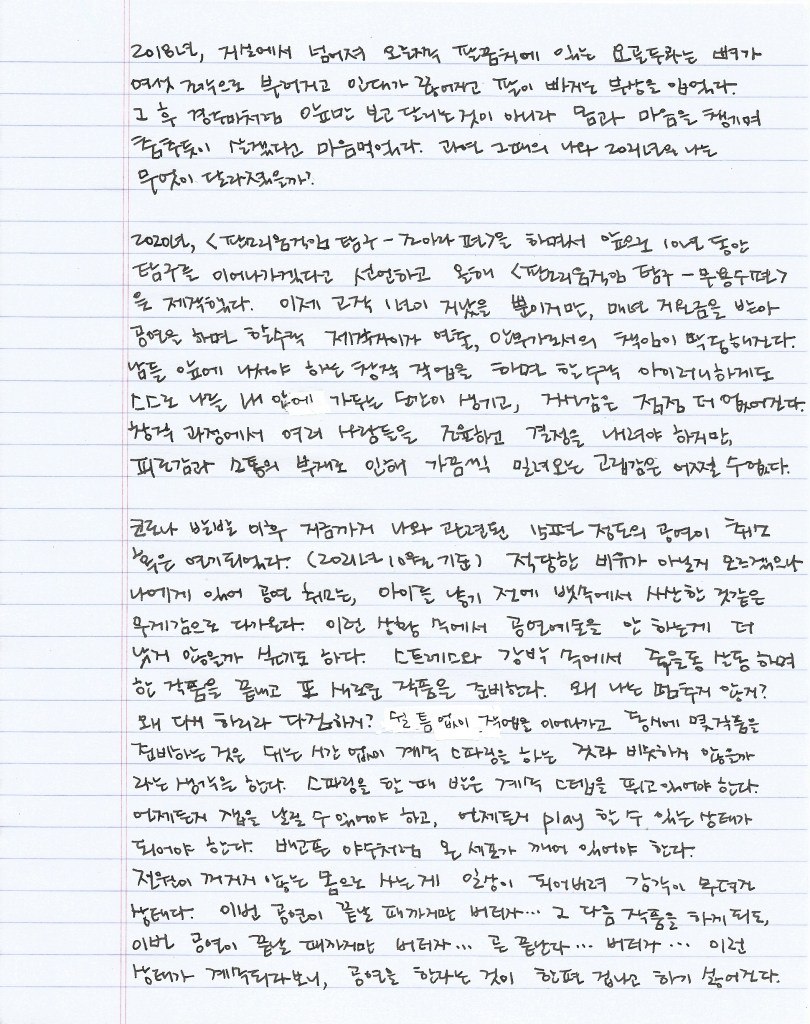 2018년, 계단에서 넘어져 오른쪽 팔꿈치에 있는 요골두라는 뼈가
여섯 조각으로 부러지고 인대가 끊어지고 팔이 빠지는 부상을 입었다.
그 후 경주마처럼 앞만 보고 달리는 것이 아니라 몸과 마음을 챙기며
춤추듯이 살겠다고 마음먹었다. 과연 그때의 나와 2021년의 나는
무엇이 달라졌을까?
2020년, <판소리움직임 탐구 - 조아라 편>을 하면서 앞으로 10년 동안
탐구를 이어나가겠다고 선언하고 올해 <판소리움직임 탐구 - 무용수편>
을 제작했다. 이제 고작 1년이 지났을 뿐이지만, 매년 지원금을 받아
공연을 하면 할수록 제작자이가 연출, 안무가로서의 책임이 막중해진다.
남들 앞에 나서야 하는 창작 작업을 하면 할수록 아이러니하게도
스스로 나를 내 안에 가두는 순간이 생기고, 자신감은 점점 더 없어진다.
창작 과정에서 여러 사람들을 조율하고 결정을 내려야 하지만,
피로감과 소통의 부재로 인해 가끔씩 밀려오는 고립감은 어쩔 수 없다.
코로나 발발 이후 지금까지 나와 관련된 15편 정도의 공연이 취소
혹은 연기되었다. (2021년 10월 기준) 적당한 비유가 아닐지 모르겠으나
나에게 있어 공연 취소는, 아이를 낳기 전에 뱃속에서 사산한 것같은
무게감으로 다가온다. 이런 상황 속에서 공연예술을 안 하는게 더
낫지 않을까 싶기도 하다. 스트레스와 강박 속에서 죽을동 살동 하며
한 작품을 끝내고 또 새로운 작품을 준비한다. 왜 나는 멈추지 않지?
왜 다시 하리라 다짐하지? 쉴 틈 없이 작업을 이어나가고 동시에 몇작품을
준비하는 것은 쉬는 시간 없이 계속 스파링을 하는 것과 비슷하지 않을까
라는 생각을 한다. 스파링을 할 때 발은 계속 스텝을 뛰고 있어야 한다.
언제든지 잽을 날릴 수 있어야 하고, 언제든지 play 할 수 있는 상태가
되어야 한다. 배고픈 야수처럼 온 세포가 깨어 있어야 한다.
전원이 꺼지지 않는 몸으로 사는 게 일상이 되어버려 감각이 무뎌진
상태다. 이번 공연이 끝날 때까지만 버티자... 그 다음 작품을 하게 되도,
이번 공연이 끝날 때까지만 버티자... 곧 끝난다... 버티자... 이런
상태가 계속되다보니, 공연을 한다는 것이 한편 겁나고 하기 싫어진다.